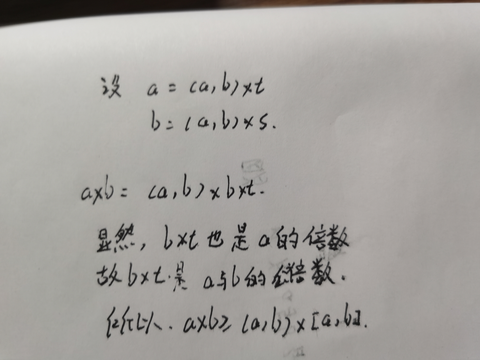 设 a = (a,b)×t
b = (a,b)×s.
a×b = (a,b)×b×t.
显然, b×t 也是 a 的倍数
故 b×t 是 a与b 的公倍数.
所以. a×b ≥ (a,b)×[a,b].